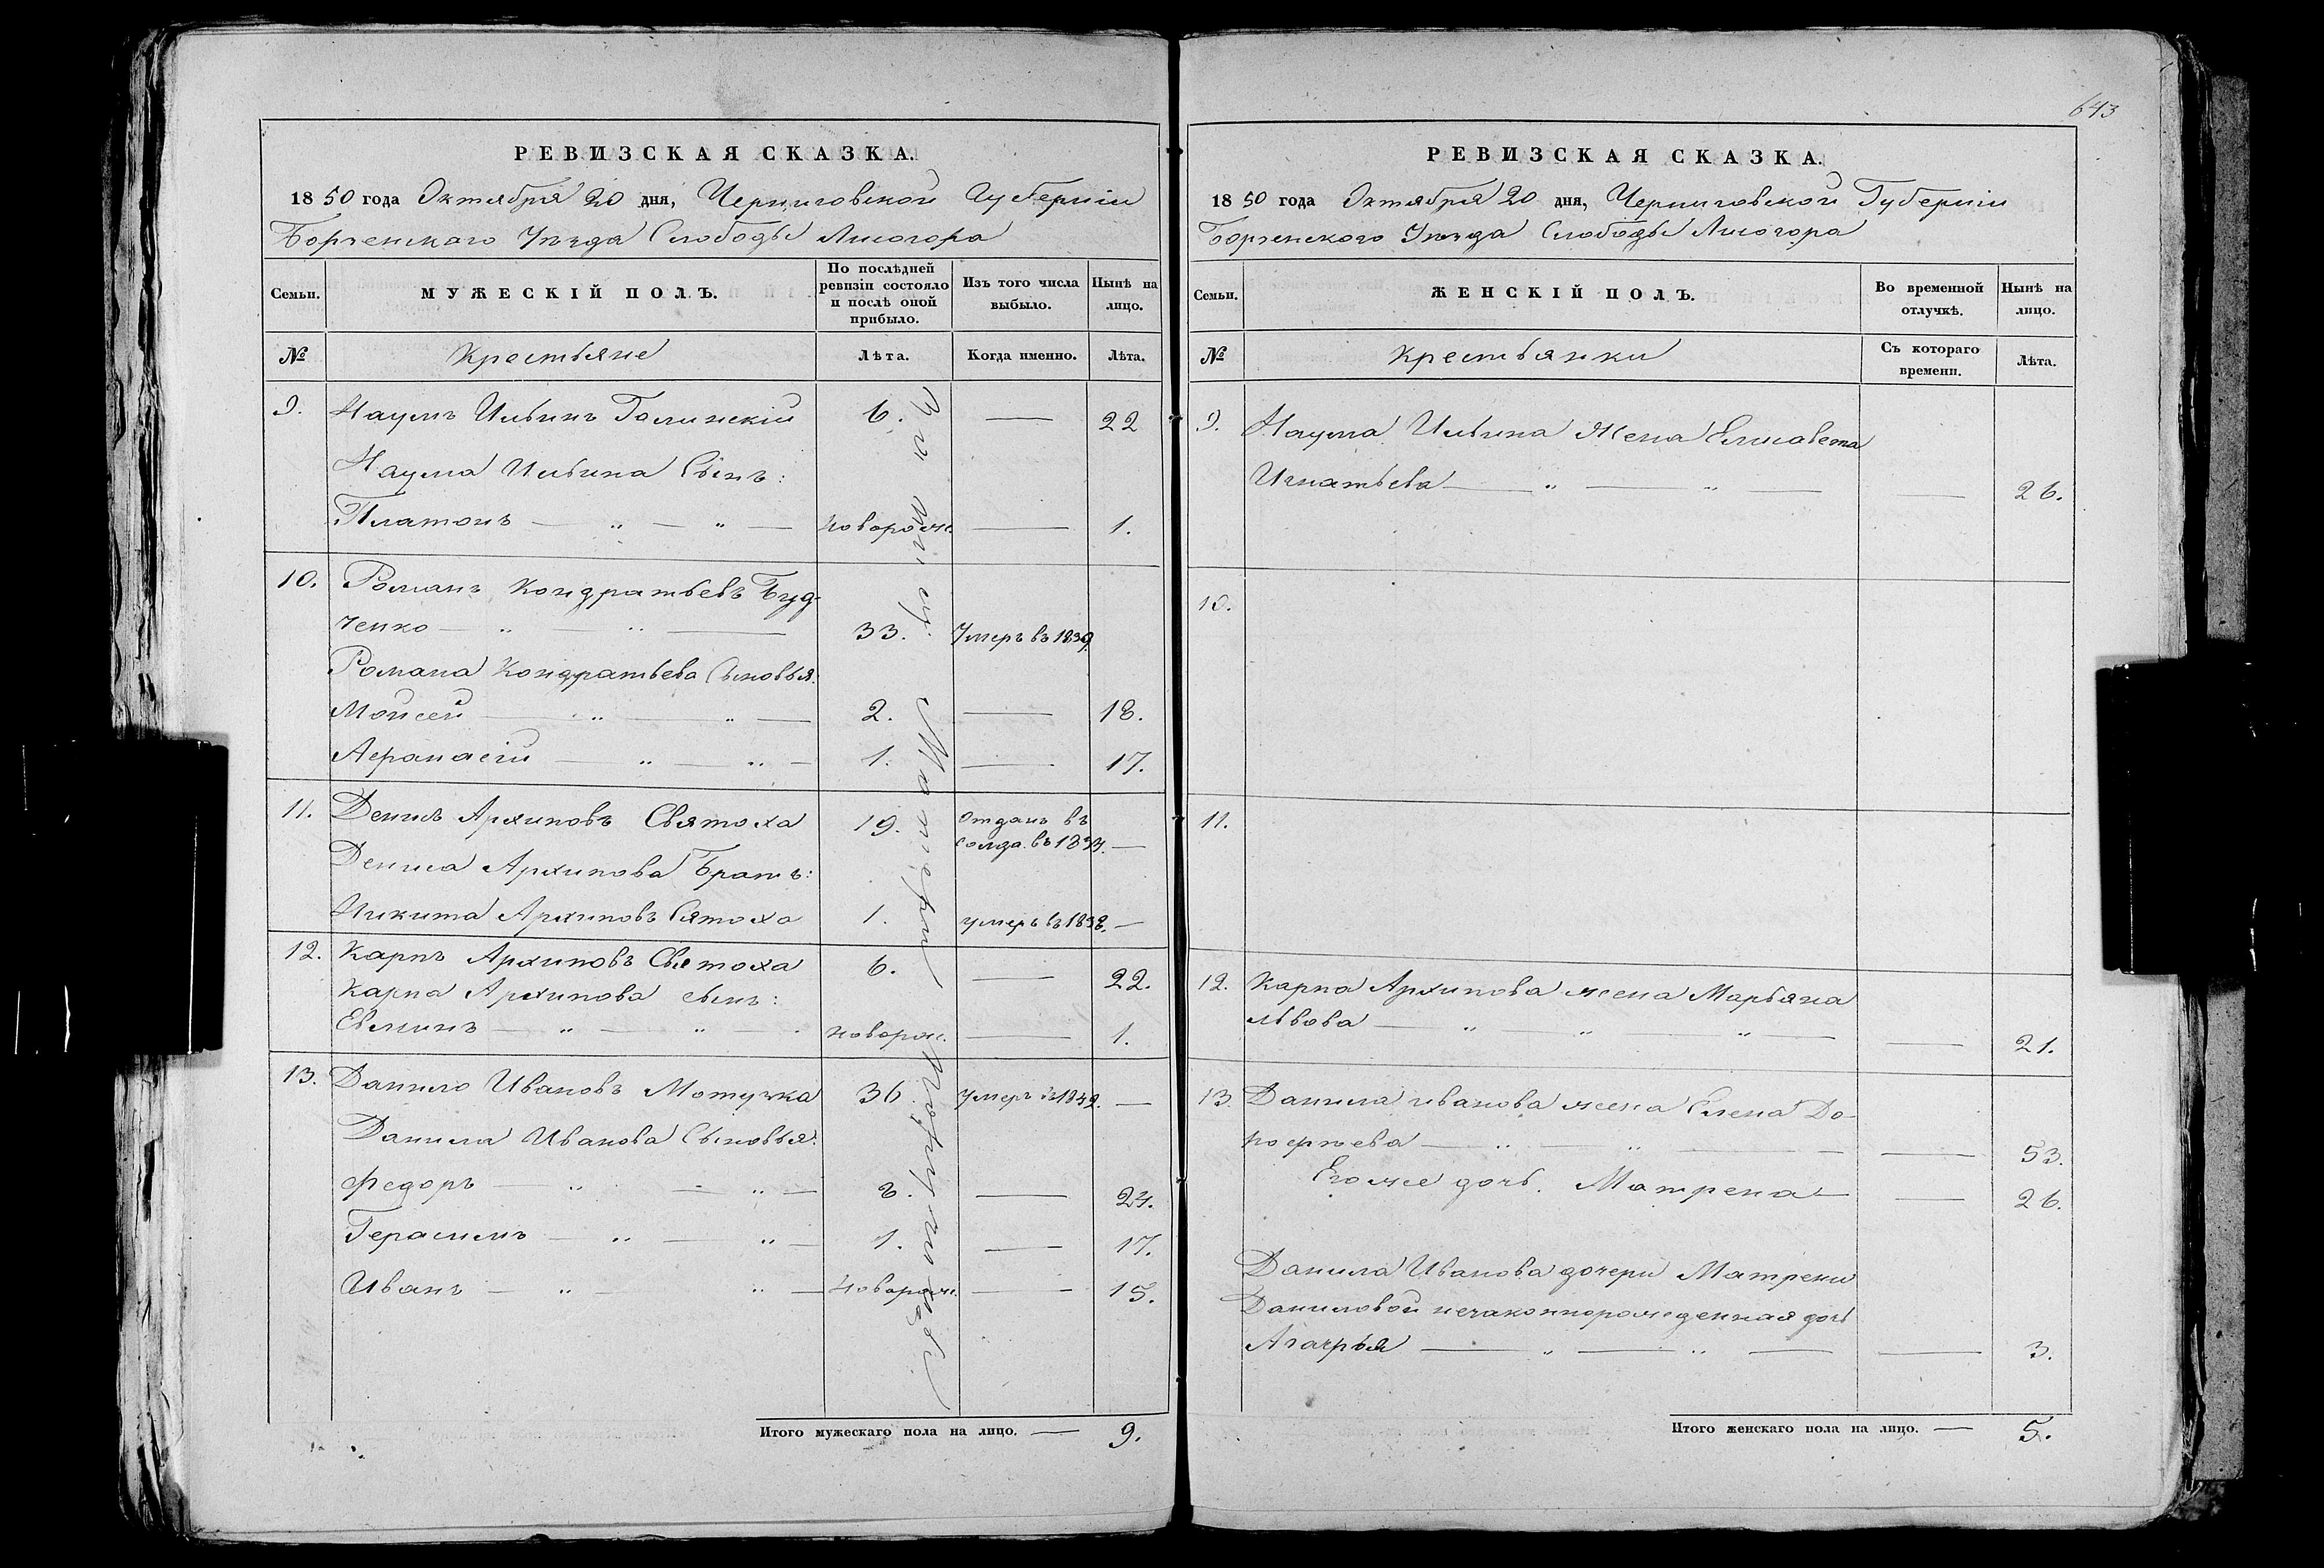 643
РЕВИЗСКАЯ СКАЗКА.
1850 года Октября 20 дня, Черниговской Губерніи
Борзенскаго Уезда Слободы Лисогора
Семьи.
МУЖЕСКІЙ ПОЛЪ.
По послѣдней ревизіи состояло и послѣ оной прибыло.
Изъ того числа выбыло.
Нынѣ на лицо.
№
Крестьяне
Лѣта.
Когда именно.
Лѣта.
9. Наумъ Ильинъ Голинскій 6. — 22
Наума Ильина Сынъ:
Платонъ — „ — „ — новорож. — 1.
10. Романъ Кондратьевъ Буд-
ченко — „ — „ — 33. Умеръ въ 1839.
Романа Кондратьева Сыновья:
Мойсей — „ — „ — 2. — 18.
Афанасій — „ — „ — 1. — 17.
11. Денисъ Архиповъ Святоха 19. Отданъ въ
солда. въ 1834. —
Дениса Архипова Братъ:
Никита Архиповъ Сятоха 1. умеръ въ 1838. —
12. Карпъ Архиповъ Святоха 6. — 22.
Карпа Архипова сынъ:
Евминъ — „ — „ — новорож. — 1.
13. Данило Ивановъ Мотузка 36. умеръ въ 1842. —
Данила Иванова Сыновья:
Федоръ — „ — „ — 8. — 24.
Герасимъ — „ — „ — 1. — 17.
Иванъ — „ — „ — новорож. — 15.
Итого мужескаго пола на лицо. — 9.
РЕВИЗСКАЯ СКАЗКА.
1850 года Октября 20 дня, Черниговской Губерніи
Борзенского Уезда Слободы Лисогора
Семьи.
ЖЕНСКІЙ ПОЛЪ.
Во временной отлучкѣ.
Нынѣ на лицо.
№
Крестьянки
Съ котораго времени.
Лѣта.
9. Наума Ильина Жена Елисавета
Игнатьева — „ — „ — — 26.
10.
11.
12. Карпа Архипова жена Марьяна
Львова — „ — „ — „ — — 21.
13. Данила Иванова жена Елена До-
рофѣева — „ — „ — — 53.
Его же дочь Матрена — — 26.
Данила Иванова дочери Матрены
Даниловой незаконнорожденная дочь
Агафья — „ — „ — — 3.
Итого женскаго пола на лицо. — 5.